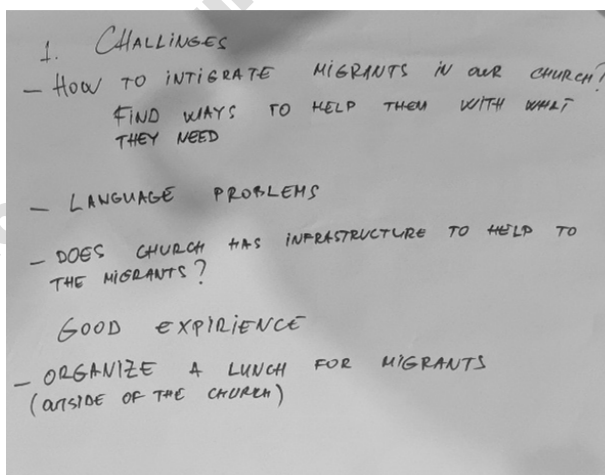 1. CHALLINGES
- HOW TO INTIGRATE MIGRANTS IN OUR CHURCH?
FIND WAYS TO HELP THEM WITH WHAT
THEY NEED
- LANGUAGE PROBLEMS
- DOES CHURCH HAS INFRASTRUCTURE TO HELP TO
THE MIGRANTS?
GOOD EXPIRIENCE
- ORGANIZE A LUNCH FOR MIGRANTS
(OUTSIDE OF THE CHURCH)